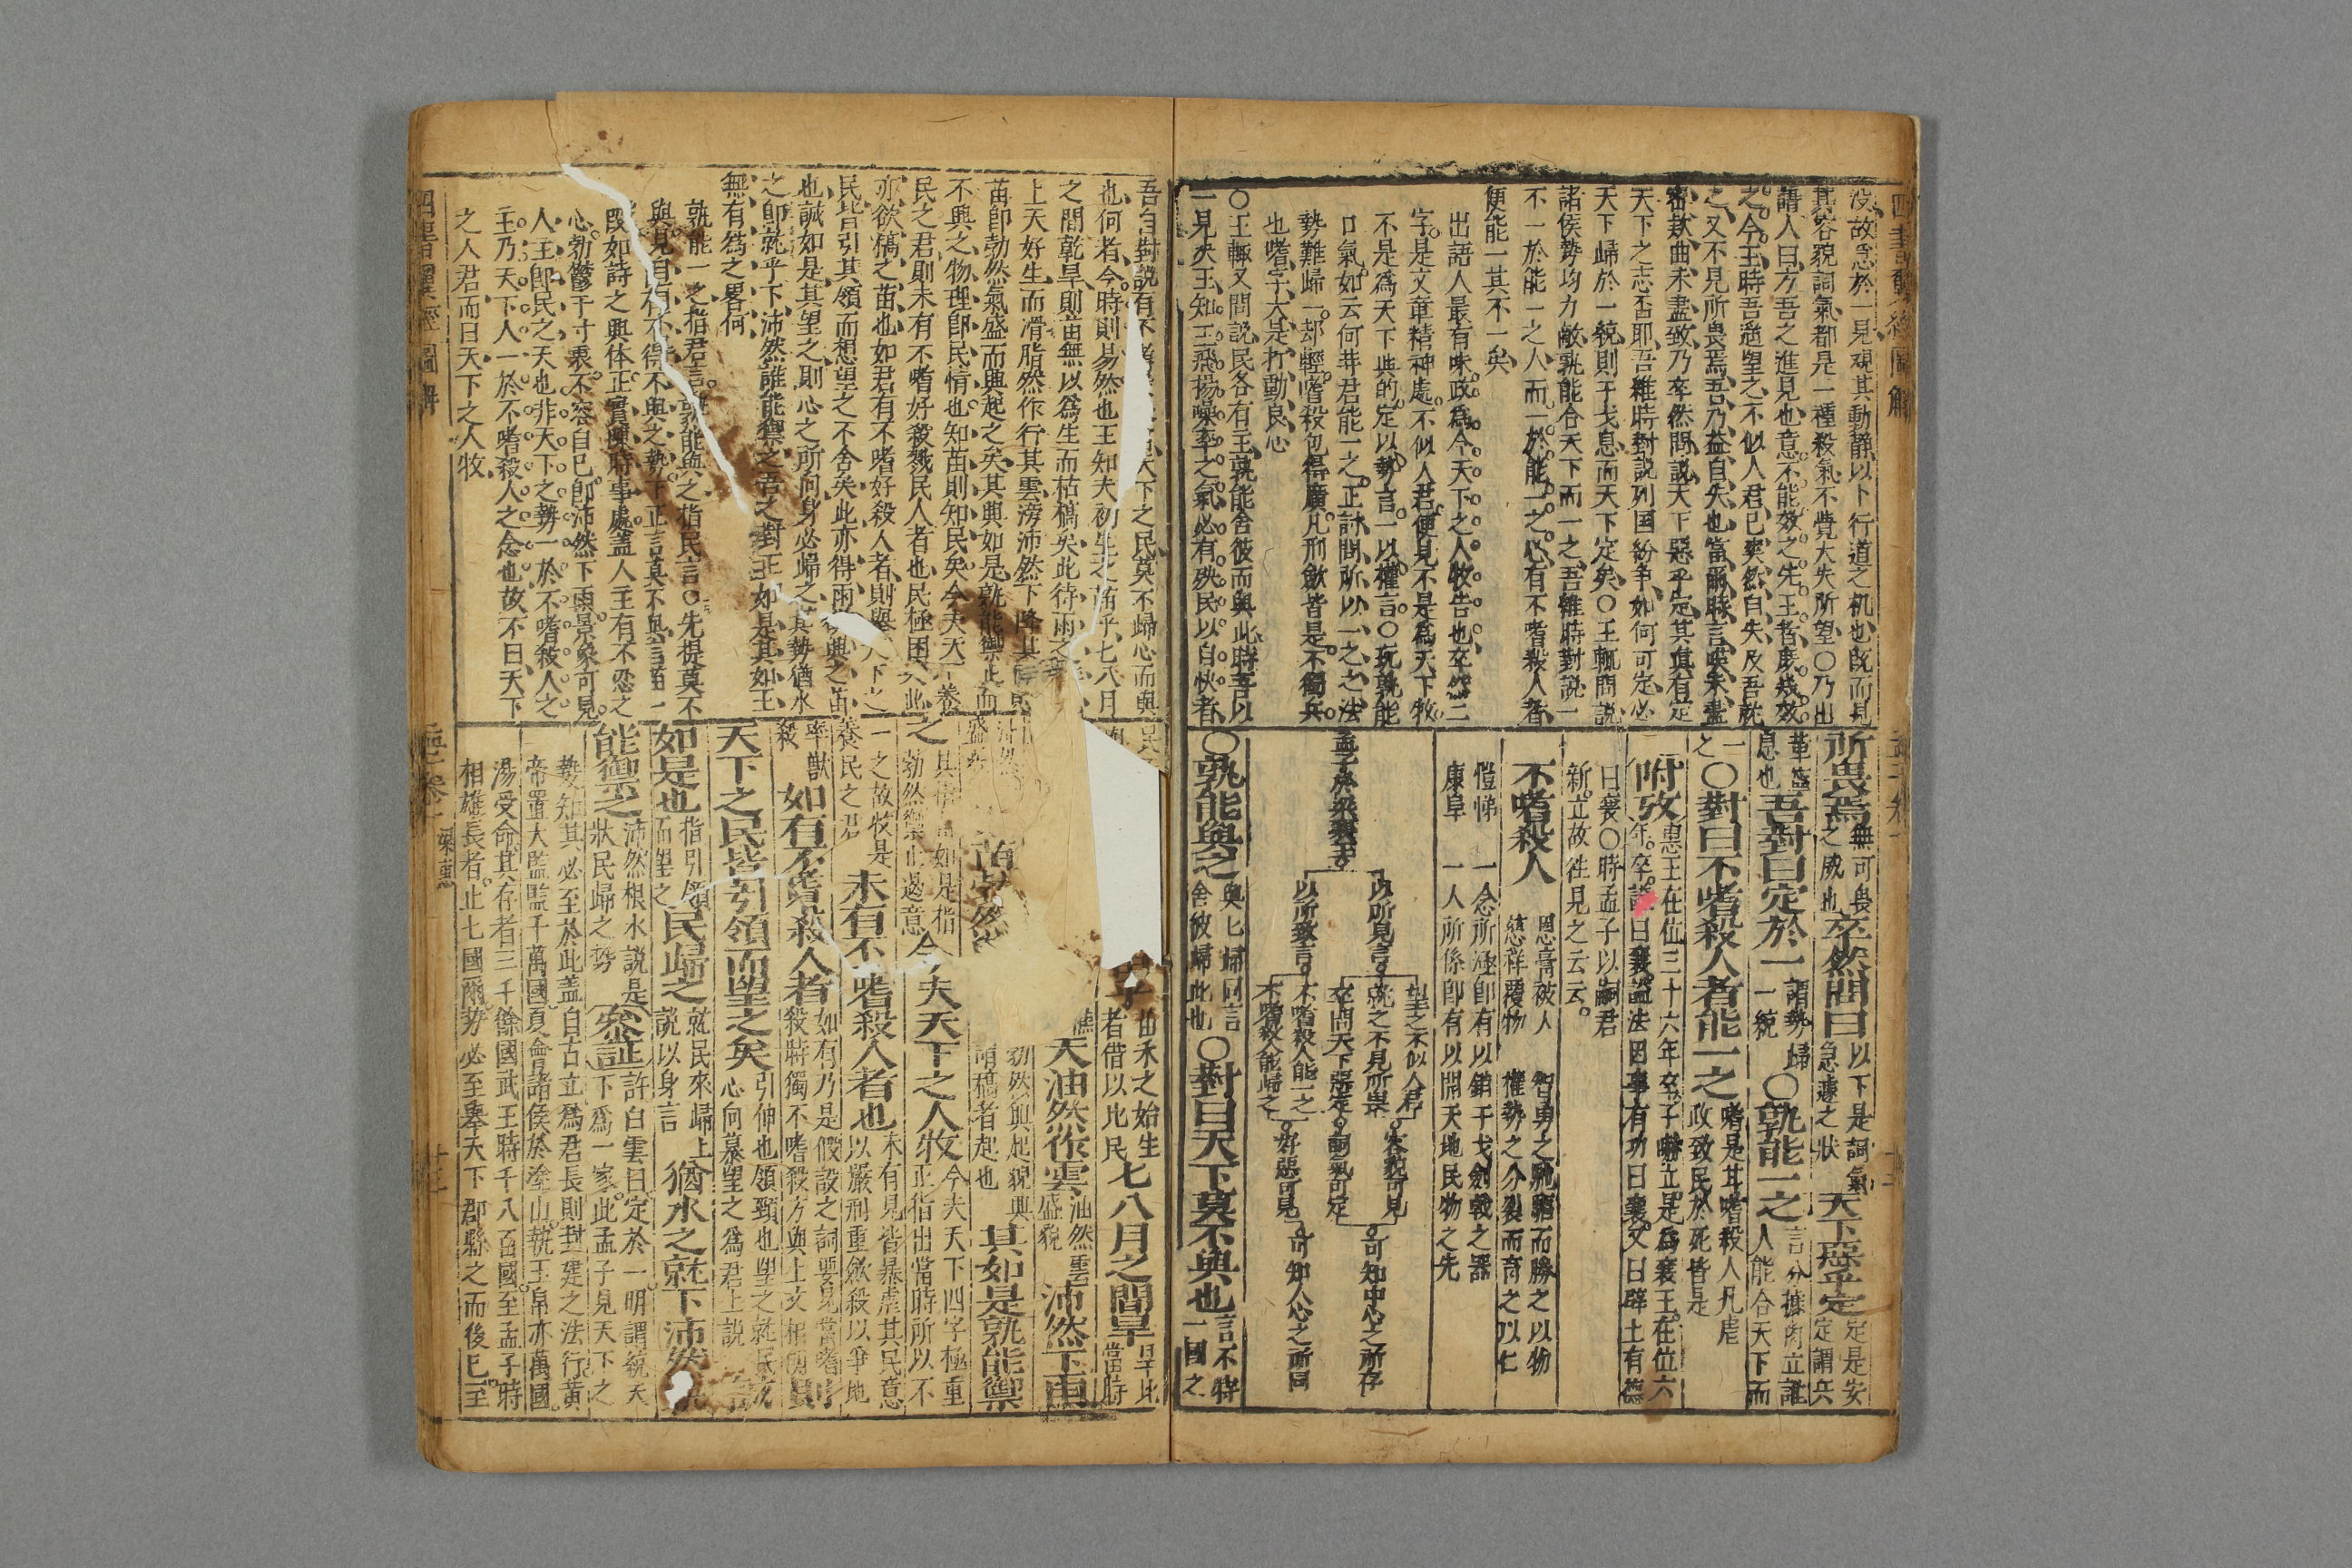 沒故急於一見觀其動靜以卜行道之机也既而見
其容貌詞氣都是一種殺氣不覺大失所望○乃出
語人曰方吾之進見也意不能效之先王者庶幾效
之今王時吾遥望之不似人君已爽然自失及吾就
之又不見所畏焉吾乃益自失也當爾時言
款曲未盡致乃卒然問説天下惡乎定其真有定
天下之志否耶吾雖時對説列国紛争如何可定必
天下歸於一統則干戈息而天下定矣○王輒問説
諸侯勢均力敵孰能合天下而一之吾雖時對説一
不一於能一之人而一於能一之心有不嗜殺人者
便能一其不一矣
出語人最有味政為今天下之人牧告也卒然二
字是文章精神處不似人君便見不是為天下牧
不是為天下與的定以勢言一以權言○玩孰能
口氣如云何等君能一之正討問所以一之之法
勢難歸一却輕嗜殺包得廣凡刑斂皆是不獨兵
也嗜字大是打動良心
○王輒又問説民各有主孰能舍彼而與此時吾以
一見夫王知王飛揚
之氣必有殃民以自快者
所畏焉無可畏之威也卒然問曰以下是詞氣急遽之狀天下惡乎定定是安定謂兵
革盡息也吾對曰定於一謂勢歸一統○孰能一之言分據角立誰人能合天下而
一之○對曰不嗜殺人者能一之嗜是甘嗜殺人凡虐政致民於死皆是
附攷惠王在位三十六年卒子赫立是為襄王在位六年卒謚曰襄謚法因事有功曰襄又曰辟土有德
曰襄○時孟子以嗣君新立故往見之云云
不嗜殺人
恩膏被人 慈祥覆物
智勇之馳驅而勝之以物 權勢之分裂而育之以仁
愷悌 一念所極即有以銷干戈劍戟之器
康阜 一人所係即有以開天地民物之先
孟子於梁襄王
以所見言
以所致言
望之不似人君
就之不見所畏
卒問天下惡乎定
不嗜殺人能一之
不嗜殺人能歸之
容貌可見
詞氣可定
好惡可見
可知中心之所存
可知人心之所同
○孰能與之與匕歸同言舍彼歸此也○對曰天下莫不與也言不特一國之
吾自對説有不
天下之民莫不歸心而與
也何者今時則易然也王知夫初生之苗乎七八月
之間乾旱則苗無以為生而枯槁矣此待雨之
上天好生而滑脂然作行其雲滂沛然下降其
苗即勃然氣盛而興起之矣其興如是孰能禦止而
不興之物理即民情也知苗則知民矣今夫天下養
民之君則未有不嗜好殺戮民人者也民極困
亦欲槁之苗也如君有不嗜好殺人者則舉天下之
民皆引其領而想望之不舍矣此亦得雨興之苗
也誠如是其望之則心之所向身必歸之其勢猶水
之即就乎下沛然誰能禦之吾之對王如是其如王
無有為之畧何
孰能一之指君言孰能與之指民言○先提莫不
與見自有不得不與之勢下正言莫不與言苗一
段如詩之興体正實興時事處蓋人主有不忍之
心勃鬱于寸衷不容自已即沛然下雨景象可見
人主即民之天也非天下之勢一於不嗜殺人之
主乃天下人一於不嗜殺人之念也故不曰天下
之人君而曰天下之人牧
苗禾之始生者借以比民七八月之間旱旱比當時
天油然作雲油然雲盛貌沛然下雨
苗浡然
勃然興起貌興謂稿者起也其如是孰能禦
之其 如是指勃然禦止遏意今夫天下之人牧今夫天下四字極重正指出當時所以不
一之故牧是養民之君未有不嗜殺人者也未有見皆暴虐其民意以嚴刑重斂殺以爭地
率獸殺如有不嗜殺人者如有乃是假設之詞要見當嗜殺時獨不嗜殺方與上文相關則
天下之民皆引領而望之矣引伸也領頸也望之就民
心向慕望之為君上説
如是也指引領而望之民歸之就民來歸上説以身言猶水之就下沛然
能禦之沛然根水説是狀民歸之勢叅証許白雲曰定於一明謂統天下為一家此孟子見天下之
勢知其必至於此蓋自古立為君長則封建之法行黃
帝置大監監于萬國夏會諸侯於塗山執玉帛亦萬國
湯受命其存者三千餘國武王時千八百國至孟子時
相雄長者止七國爾勢必至舉天下郡縣之而後已至